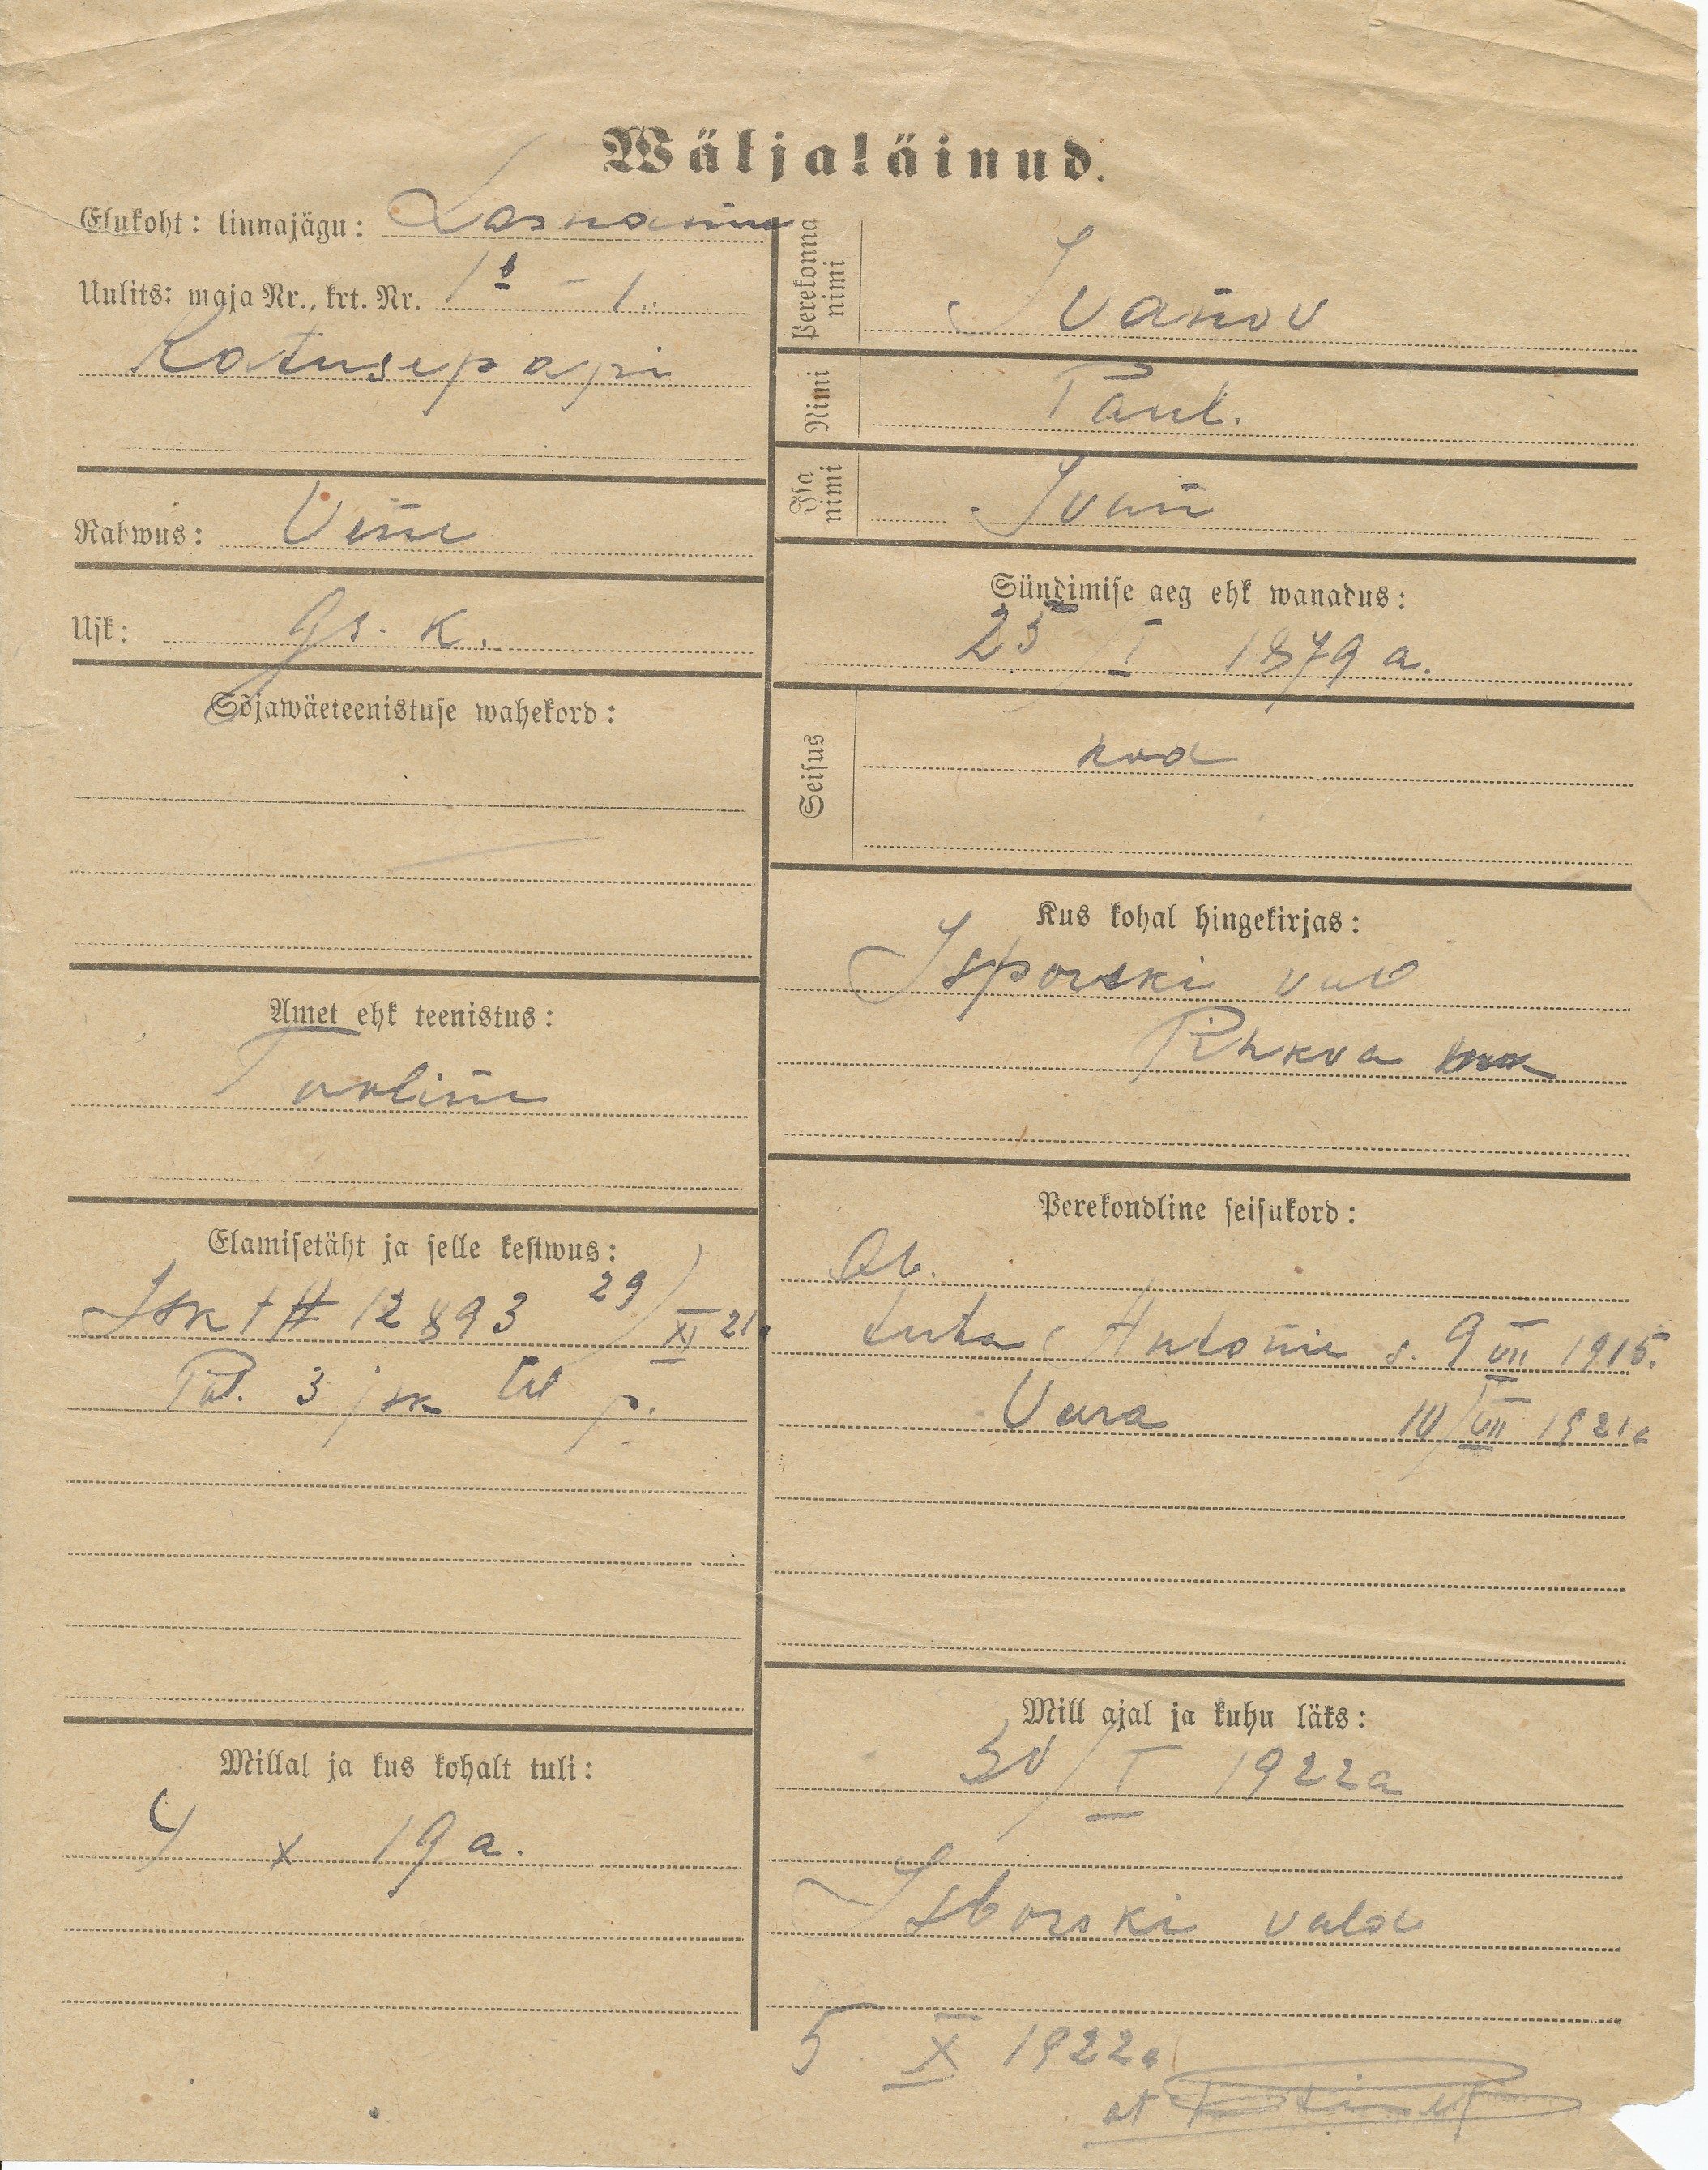 Wäljaläinud.
Elukoht: linnajägu: Lasnamäe
Uulits: maja Nr., krt. Nr. 1b – 1.
Katusepapi
Rahwus: Vene
Usk: Gr. K.
Sõjawäeteenistuse wahekord:
Amet ehk teenistus:
Tööline
Elamisetäht ja selle kestwus:
Isk t # 12893 29/XI 21.
Pol. 3 jsk p.
Millal ja kus kohalt tuli:
4 X 19 a.
Perekonna nimi Ivanov
Nimi Paul.
Isa nimi Ivan
Sündimise aeg ehk wanadus:
25/I 1879 a.
Seisus kod
Kus kohal hingekirjas:
Isporski vald
Pihkva
Perekondline seisukord:
Ab.
Antonie s. 9 VII 1915.
Veera 10/VII 1921 a
Mill ajal ja kuhu läks:
30/I 1922 a
Isborski valda
5 X 1922 a